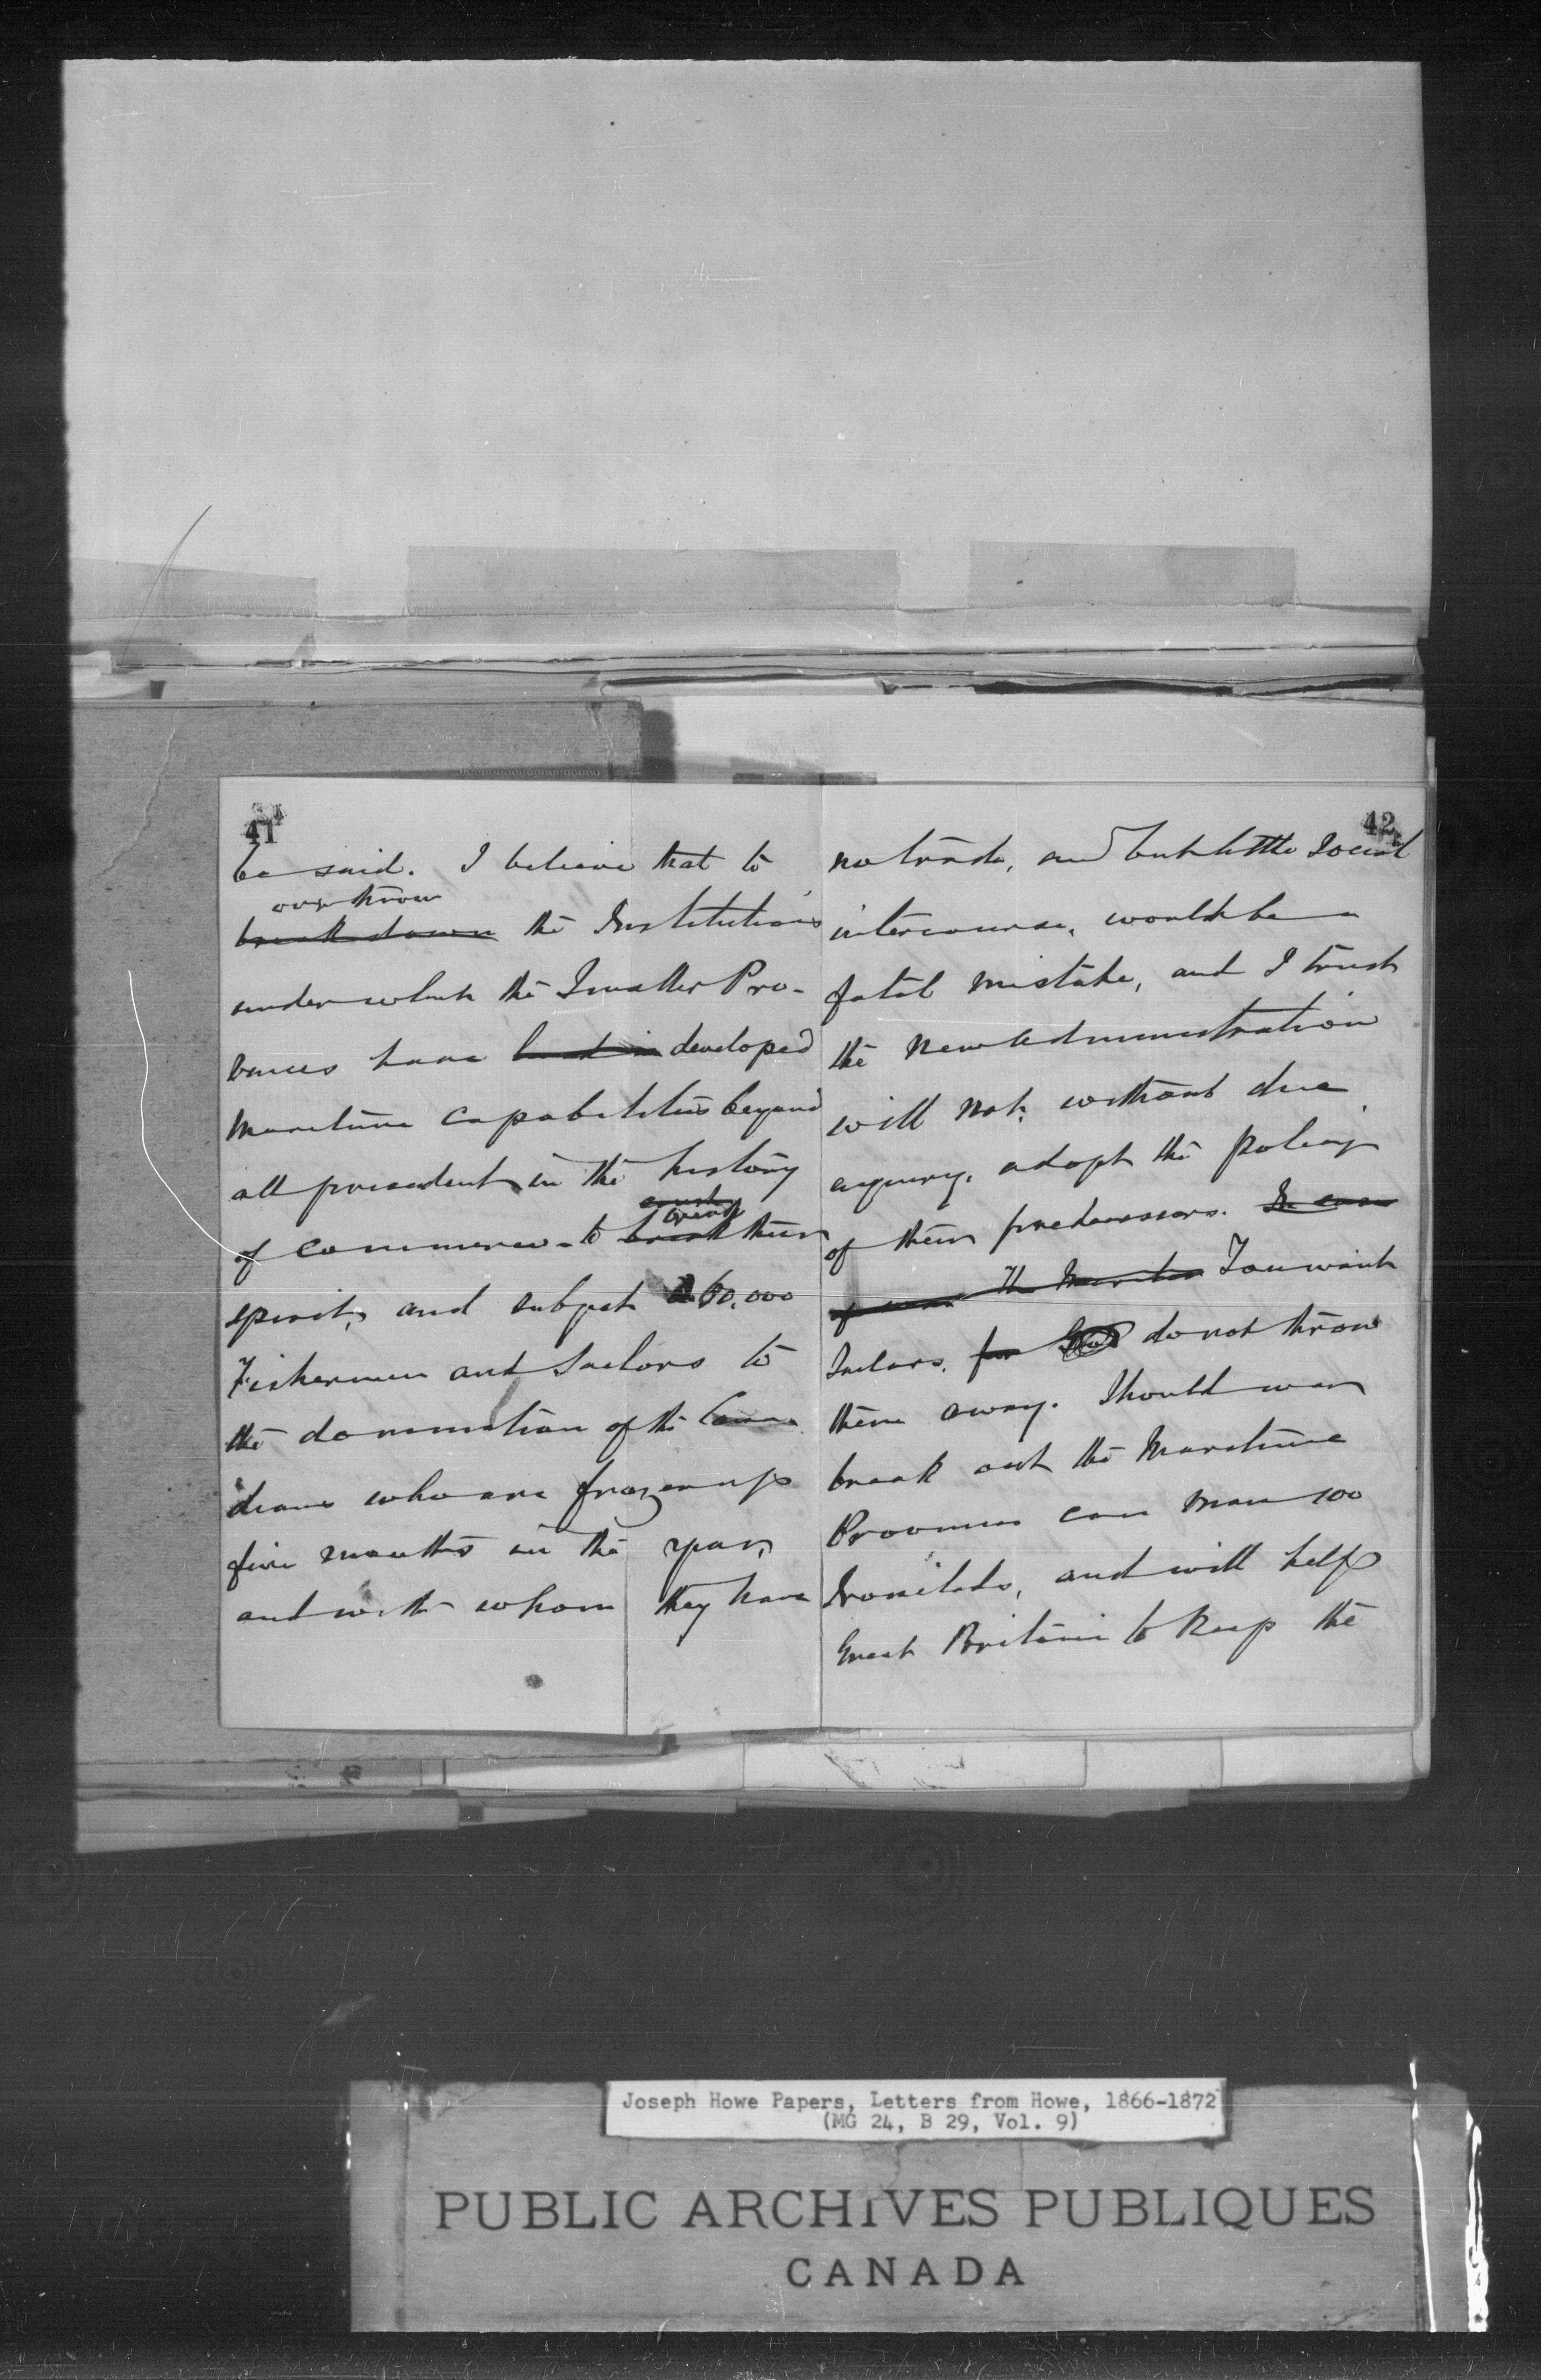 41
be said. I believe that to
overthrow
break down the Institutions
under which the Smaller Pro-
vinces have developed
Maritime capabilities beyond
all precedent in the history
of commerce - to crush
break
break their
spirit, and subject 60,000
Fishermen and Sailors to
the domination of the Cana
dians who are frozen up
five months in the year,
and with whom they have
42
no trade, and but little Social
intercourse, would be a
fatal mistake, and I trust
the New Administration
will not, without due
enquiry, adopt the policy
of their predecessors. In case
of war the Marit You want
Sailors, for do not throw
them away. Should war
break out the Maritime
Provinces can man 100
Ironclads, and will help
Great Britain to keep the
Joseph Howe Papers, Letters from Howe, 1866-1872
(MG 24, B 29, Vol. 9)
PUBLIC ARCHIVES PUBLIQUES
CANADA